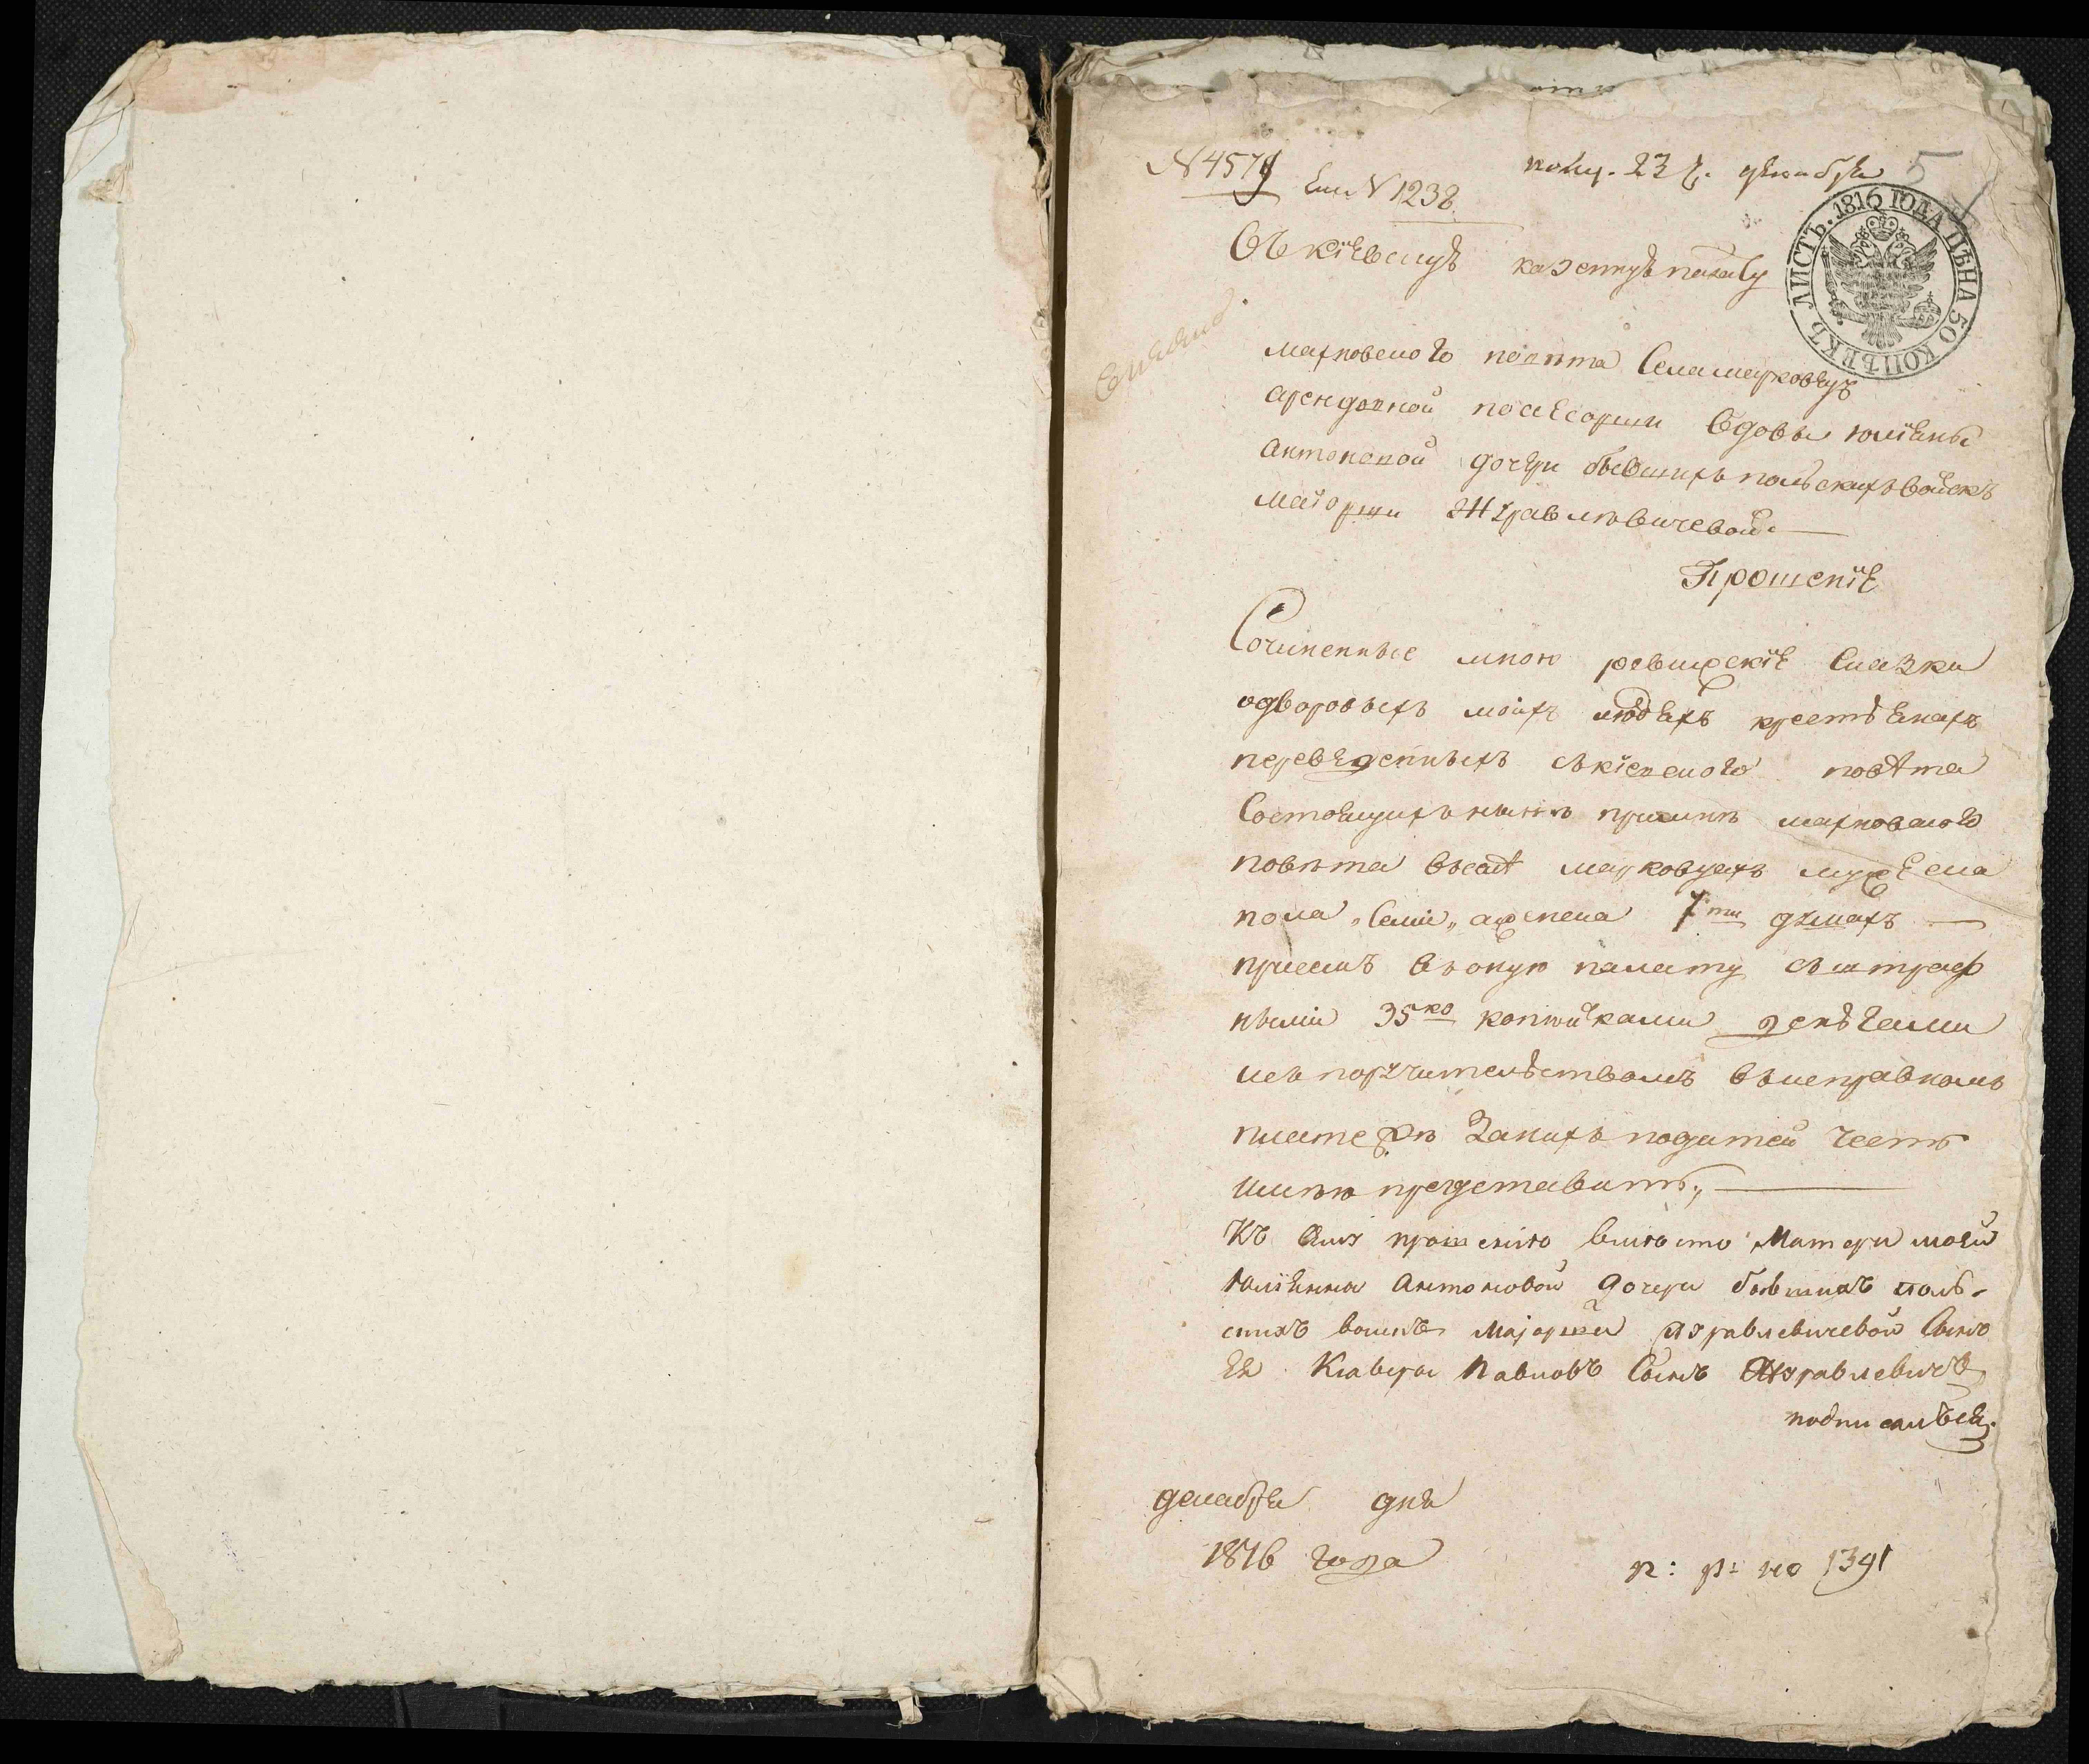 N 4574
N 1238
полу. 23 Ч. декабря
5
ЛИСТЪ. 1816 ГОДА ЦѢНА 50 КОПѢЕКЪ.
Въ кіевскую казенную палату
махновского повѣта Села марковецъ
арендовной посесорши вдовы юліяны
антоновой дочери бывшихъ польскихъ войскъ
маіорши Журавлѣвичевой
Прошеніе
Сочиненные мною ревижскіе сказки
одворовыхъ моихъ людяхъ крестьянахъ
переведенныхъ скіевского повѣта
Состоящихъ нынѣ примнѣ махновского
повѣта вселѣ марковцахъ мужеска
пола „Семи„ аженска 7ми душахъ
приемъ въоную палату съштраф
ными 35ко копѣйками деньгами
исъ поручительствомъ въисправномъ
платежѣ Занихъ податей честь
имѣю представить,
Къ сему прошенію вмюсто Матери моей
Юліянны Антоновой Дочери бывшихъ поль-
скихъ воискъ Маjорши Журавлевичевой Сынъ
Ея Ксаверы Павловъ Сынъ Журавлевичъ
подписалъся.
декабря дня
1816 года
п: р: но 1391